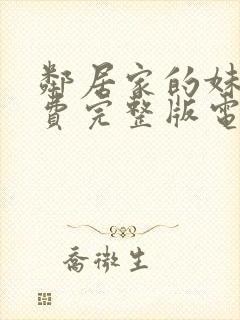 鄰居家的妹
費完整版電
喬微生